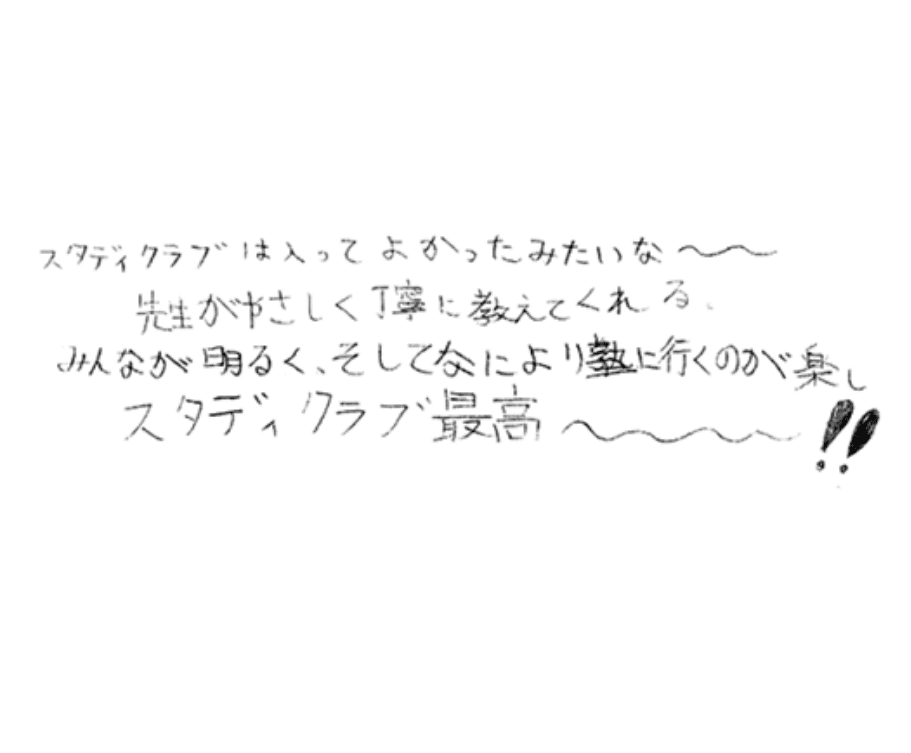 スタディクラブは入ってよかったみたいな〜〜
先生がやさしく丁寧に教えてくれる。
みんなが明るく、そしてなにより塾に行くのが楽し
スタディクラブ最高〜〜〜!!